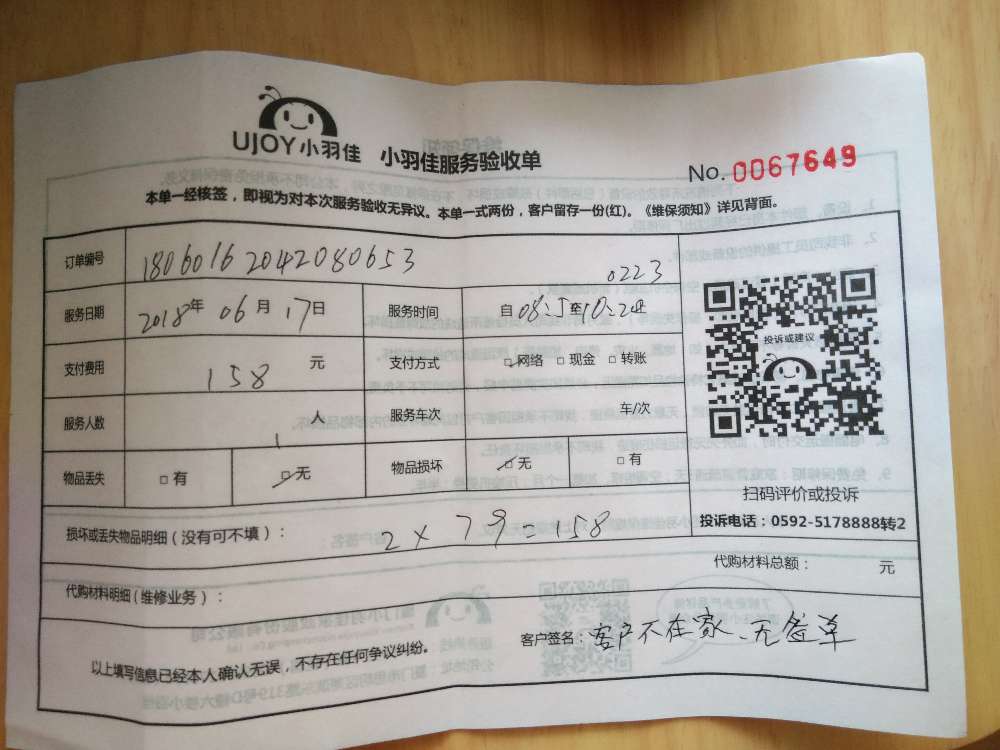 UJOY小羽佳 小羽佳服务验收单
No. 0067649
本单一经核签，即视为对本次服务验收无异议。本单一式两份，客户留存一份(红)。《维保须知》详见背面。
订单编号 1806016 2042080653 0223
服务日期 2018年 06月 17日 服务时间 自08:15至10:20
支付费用 158 元 支付方式 □网络 □现金 □转账
服务人数 1 人 服务车次 车/次
物品丢失 □有 □无 物品损坏 □无 □有
投诉或建议
扫码评价或投诉
投诉电话：0592-5178888转2
损坏或丢失物品明细（没有可不填）： 2×79=158
代购材料明细（维修业务）： 代购材料总额： 元
以上填写信息已经本人确认无误，不存在任何争议纠纷。 客户签名：客户不在家、无签单